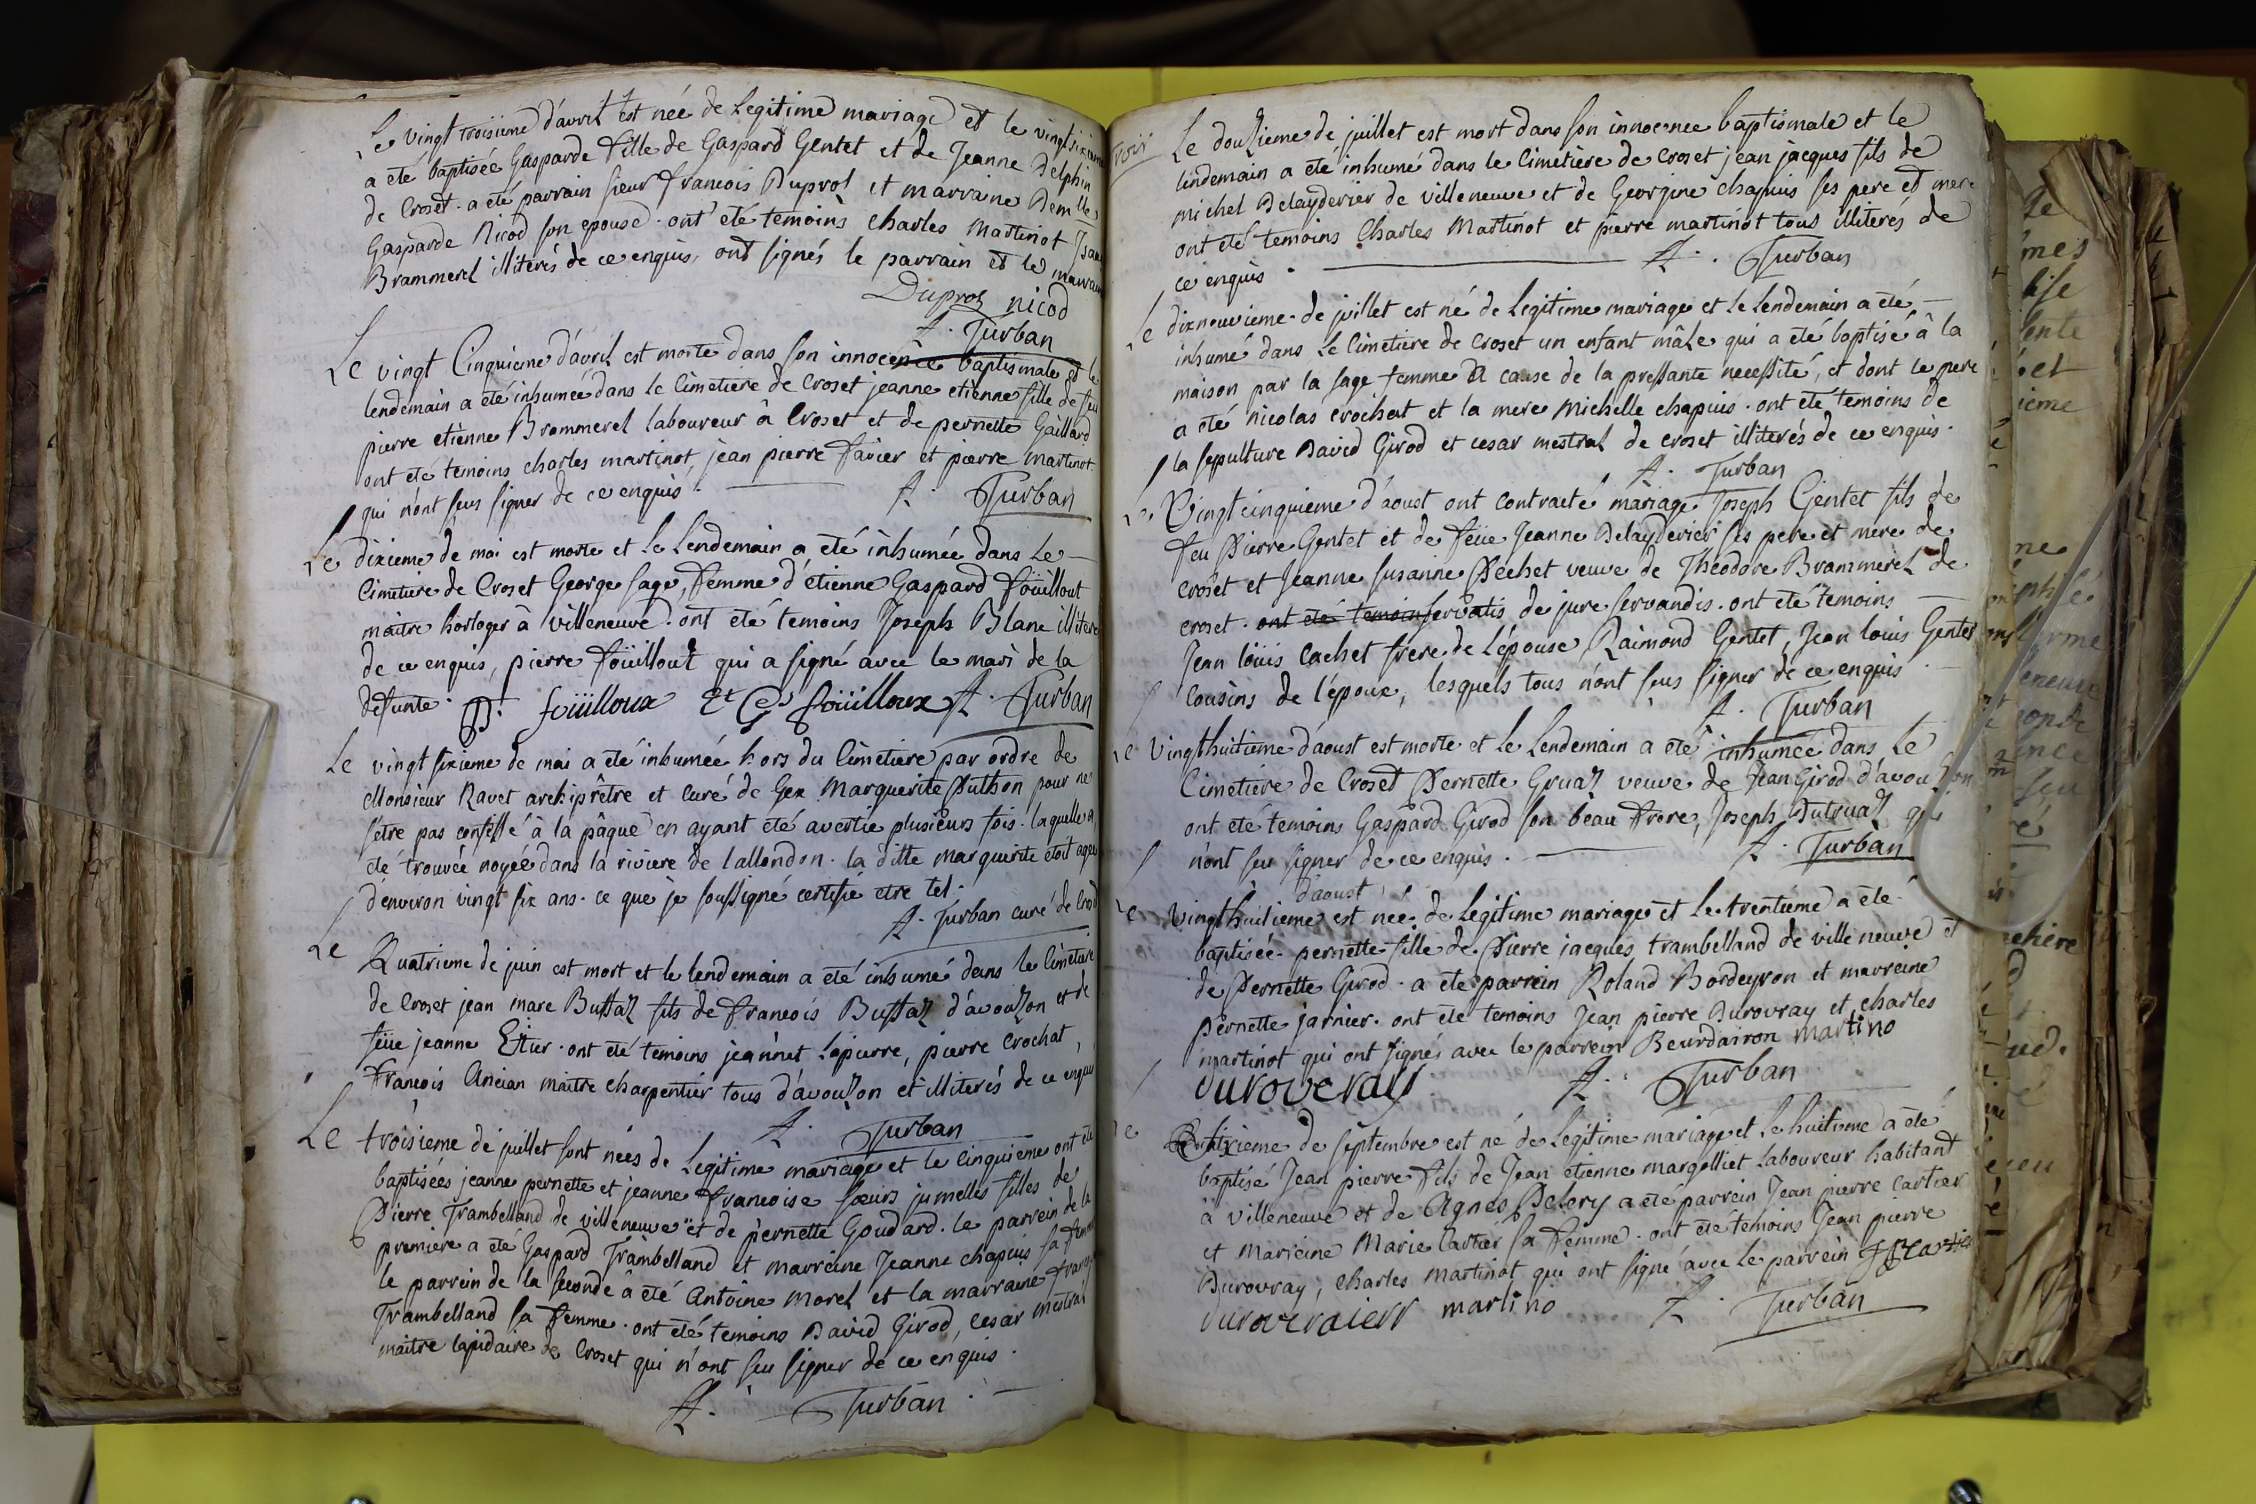 Le vingt troisieme d'avril est née de Legitime mariage et le vingt sixieme
a été baptisée Gasparde fille de Gaspard Gentet et de Jeanne Delphin
de Croset. a été parrain sieur francois Duprol et marraine Demlle
Gasparde Nicod son epouse. ont été temoins charles martinot
Brammerel illiterés de ce enquis, ont signés le parrain et la marraine
nicod
A. Turban
Le vingt Cinquieme d'avril est morte dans son innocence baptismale et le
lendemain a été inhumée dans le Cimetiere de Croset jeanne etienne fille de feu
pierre etienne Brammerel laboureur à Croset et de pernette Gaillard
ont été temoins charles martinot, jean pierre favier et pierre martinot
qui n'ont seus signer de ce enquis.
A. Turban
Le dixieme de mai est morte et le Lendemain a été inhumée dans Le
Cimetiere de Croset George sage, femme d'etienne Gaspard foüillout
maitre horloger à villeneuve. ont été temoins Joseph Blanc illiteré
de ce enquis, pierre foüillout qui a signé avec le mari de la
defunte. foüilloux et foüilloux A. Turban
Le vingt sixieme de mai a été inhumée hors du Cimetiere par ordre de
Monsieur Ravet archiprêtre et curé de Gex Marguerite Puthon pour ne
s'etre pas confessé à la pâque en ayant été avertie plusieurs fois. laquelle a
été trouvée noyée dans la riviere de l'allondon. la ditte marguerite étoit agée
d'environ vingt six ans. ce que je soussigné certifie etre tel.
A. Turban curé de Croset
Le Quatrieme de juin est mort et le lendemain a été inhumé dans le Cimetiere
de Croset jean marc Buffaz fils de francois Buffaz d'avouzon et de
feüe jeanne. ont été temoins jeannet Lapierre, pierre Crochat,
francois Ancian maitre charpentier tous d'avouzon et illiterés de ce enquis
A. Turban
Le troisieme de juillet sont nées de Legitime mariage et le Cinquieme ont été
baptisées jeanne pernette et jeanne francoise sœurs jumelles filles de
Pierre Trambelland de villeneuve et de pernette Goudard. le parrein de la
premiere a été Gaspard Trambelland et marreine Jeanne chapuis sa femme
le parrein de la seconde a été Antoine morel et la marraine
Trambelland sa femme. ont été temoins David Girod, Cesar mestral
maitre lapidaire de Croset qui n'ont seu signer de ce enquis.
A. Turban
Le douzieme de juillet est mort dans son innocence baptismale et le
lendemain a été inhumé dans le Cimetiere de Croset jean jacques fils de
michel Delayderier de villeneuve et de Georgine chapuis ses pere et mere
ont été temoins Charles Martinot et pierre martinot tous illiterés de
ce enquis.
A. Turban
Le dixneuvieme de juillet est né de Legitime mariage et le Lendemain a été
inhumé dans Le Cimetiere de Croset un enfant mâle qui a été baptisé à la
maison par la sage femme à cause de la pressante necessité, et dont le pere
a été Nicolas crochat et la mere michelle chapuis. ont été temoins de
la sepulture David Girod et cesar mestral de croset illiterés de ce enquis.
A. Turban
Le Vingt cinquieme d'aoust ont contracté mariage Joseph Gentet fils de
feu Pierre Gentet et de feüe Jeanne Delayderier ses pere et mere de
Croset et Jeanne susanne Pechet veuve de Theodore Brammerel de
croset. ont été temoins servatis de jure servandis. ont été temoins
Jean loüis Cachet frere de l'épouse Raimond Gentet, Jean louis Gentet
cousins de l'époux, lesquels tous n'ont seus signer de ce enquis
A. Turban
Le vingthuitieme d'aoust est morte et le Lendemain a été inhumée dans Le
Cimetiere de Croset Pernette Gruaz veuve de Jean Girod d'avouzon
ont été temoins Gaspard Girod son beau frere, Joseph Dutruaz qui
n'ont seu signer de ce enquis.
A. Turban
d'aoust
Le vingthuitieme est née de Legitime mariage et Le trentieme a été
baptisée pernette fille de Pierre jacques trambelland de villeneuve et
de Pernette Girod. a été parrein Roland Bordeyron et marreine
Pernette jarnier. ont été temoins Jean pierre Durovray et charles
martinot qui ont signés avec le parrein Beurdairon martino
duroveray A. Turban
Le sixieme de septembre est né de Legitime mariage et Le huitieme a été
baptisé Jean pierre fils de Jean etienne margolliet laboureur habitant
à villeneuve et de Agnes Pelery a été parrein Jean pierre Cartier
et marreine Marie Cartier sa femme. ont été temoins Jean pierre
Durovray, charles martinot qui ont signé avec le parrein
martino A. Turban